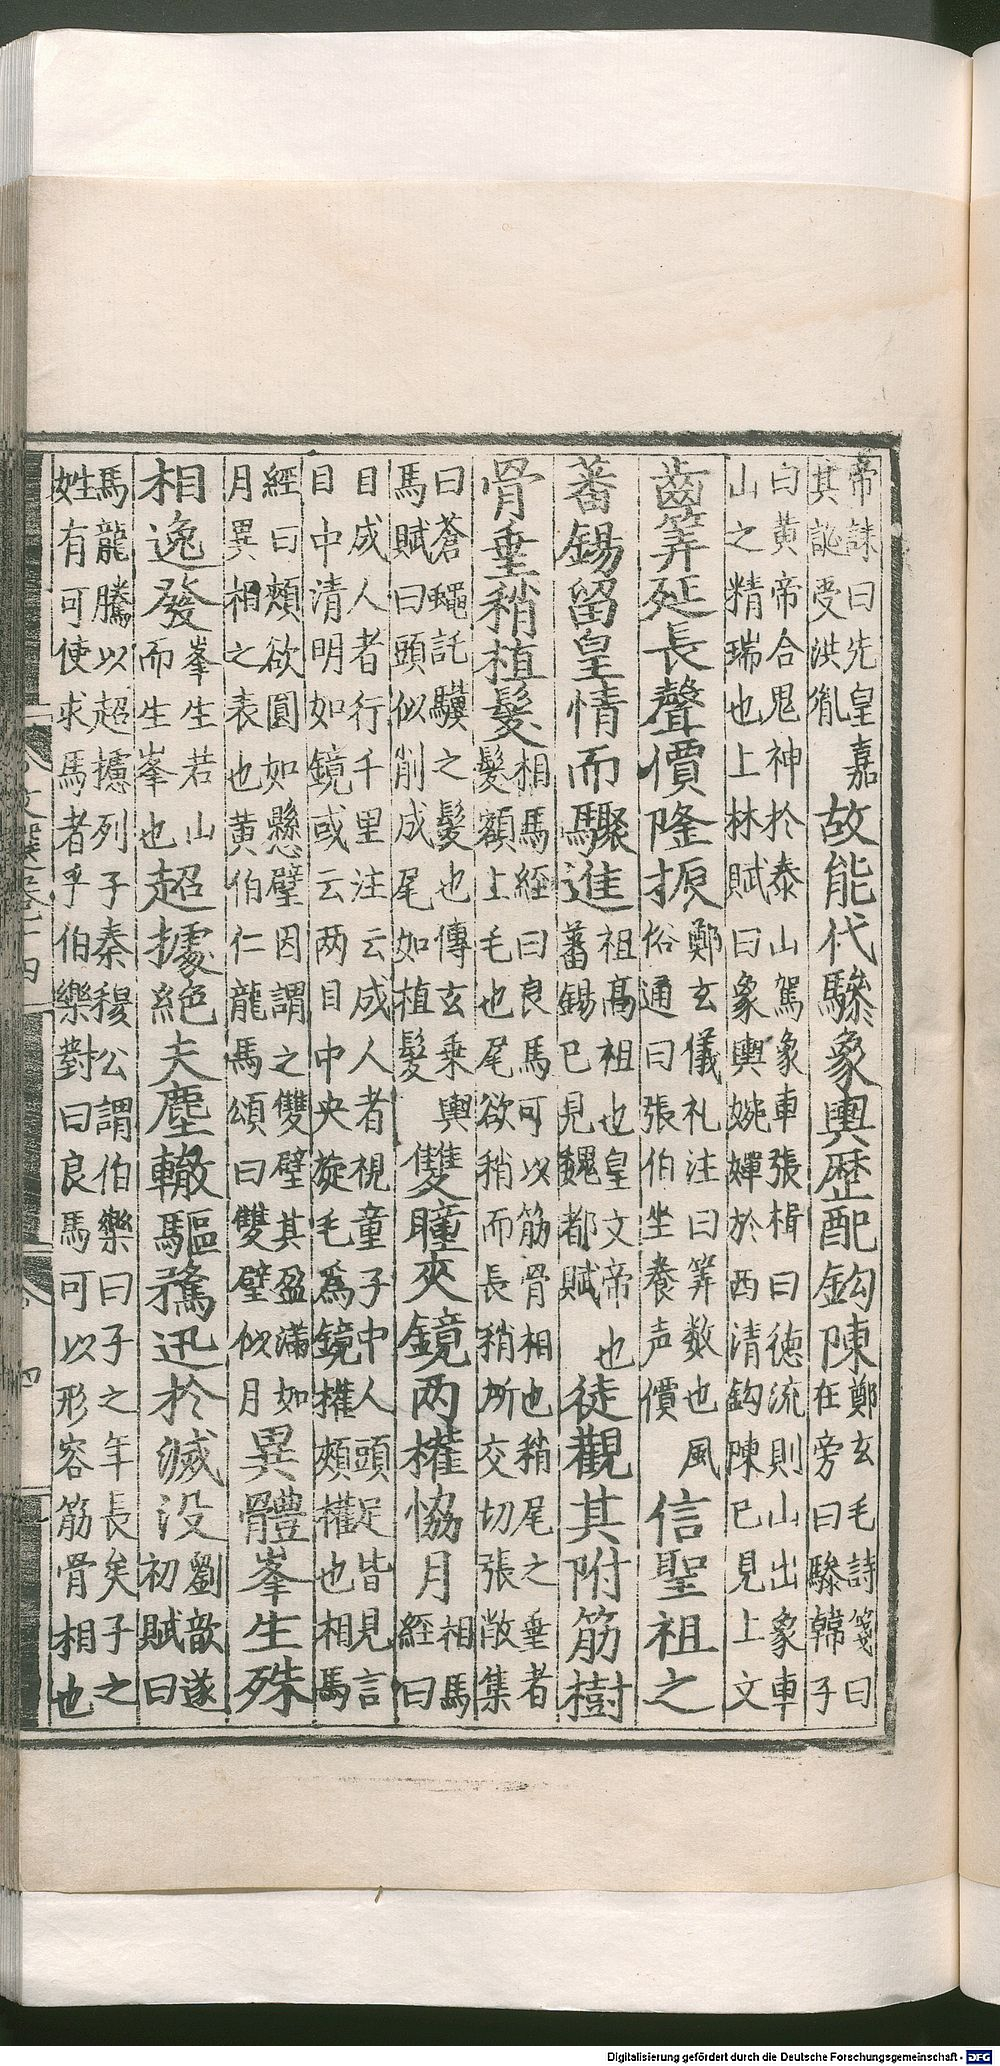 帝誄曰先皇嘉其誕受洪胤故能代驂象輿歷配鈎陳鄭玄毛詩箋曰在旁曰驂韓子
曰黄帝合鬼神於泰山駕象車張楫曰德流則山出象車山之精瑞也上林賦曰象輿婉嬋於西清鈎陳已見上文
齒筭延長聲價隆振鄭玄儀礼注曰筭数也風俗通曰張伯坐養声價信聖祖之
蕃錫留皇情而驟進祖高祖也皇文帝也蕃錫已見魏都賦徒觀其附筋樹
骨垂稍植髮相馬經曰良馬可以筋骨相也稍尾之垂者髮額上毛也尾欲稍而長稍所交切張敞集
曰蒼蠅託驥之髮也傅玄乗輿馬賦曰頭似削成尾如植髮雙瞳夾鏡两權恊月相馬經曰
目成人者行千里注云成人者視童子中人頭足皆見言目中清明如鏡或云两目中央旋毛為鏡權頰權也相馬
經曰頰欲圓如懸璧因謂之雙璧其盈滿如月異相之表也黄伯仁龍馬頌曰雙璧似月異體峯生殊
相逸發峯生若山而生峯也超攄絕夫塵轍驅騖迅於滅没劉歆遂初賦曰
馬龍騰以超攄列子秦穆公謂伯樂曰子之年長矣子之姓有可使求馬者乎伯樂對曰良馬可以形容筋骨相也
文選卷十四
四
Digitalisierung gefördert durch die Deutsche Forschungsgemeinschaft - DFG